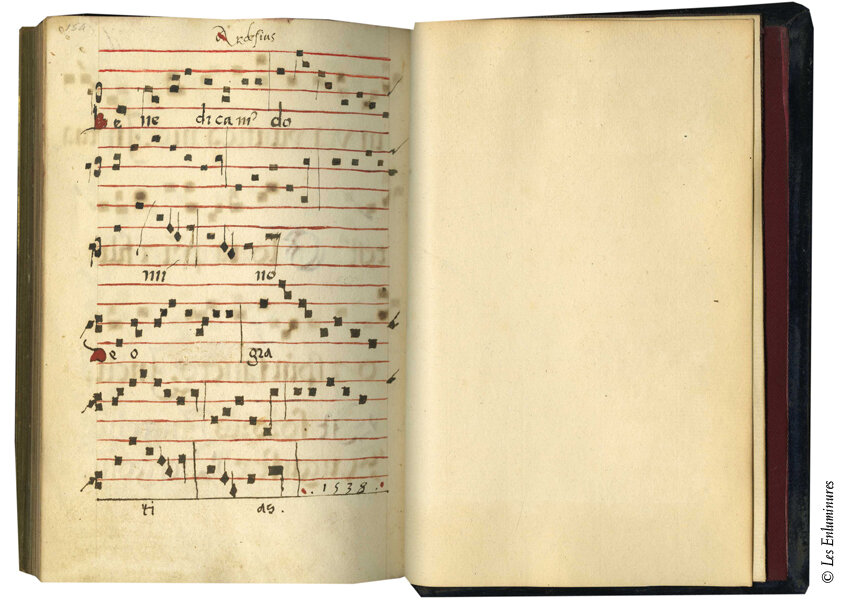 154
Be ne di ca mꝰ do
mi no
De o gra
. 1538 .
ti as.
© Les Enluminures